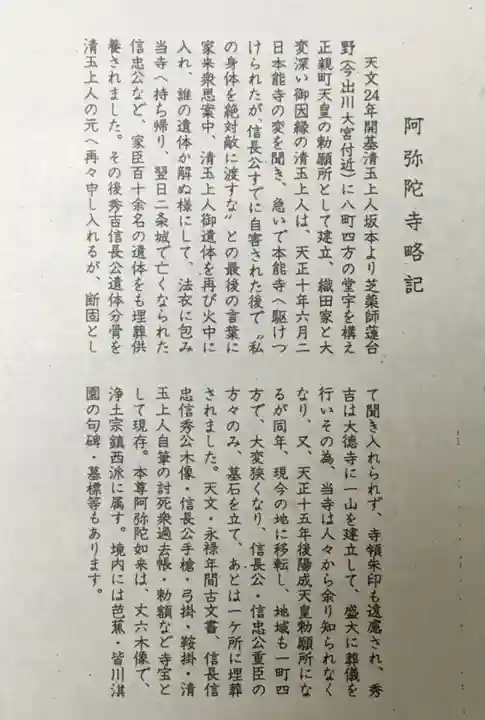 阿弥陀寺略記
天文24年開基清玉上人坂本より芝薬師蓮台
野(今出川大宮付近)に八町四方の堂宇を構え
正親町天皇の勅願所として建立、織田家と大
変深い御因縁の清玉上人は、天正十年六月二
日本能寺の変を聞き、急いで本能寺へ駆けつ
けられたが、信長公すでに自害された後で〝私
の身体を絶対敵に渡すな〟との最後の言葉に
家来衆思案中、清玉上人御遺体を再び火中に
入れ、誰の遺体か解ぬ様にして、法衣に包み
当寺へ持ち帰り、翌日二条城で亡くなられた
信忠公など、家臣百十余名の遺体をも埋葬供
養されました。その後秀吉信長公遺体分骨を
清玉上人の元へ再々申し入れるが 断固とし
て聞き入れられず、寺領朱印も遠慮され、秀
吉は大徳寺に一山を建立して、盛大に葬儀を
行いその為、当寺は人々から余り知られなく
なり、又、天正十五年後陽成天皇勅願所にな
るが同年、現今の地に移転し、地域も一町四
方で、大変狭くなり、信長公・信忠公重臣の
方々のみ、墓石を立て、あとは一ケ所に埋葬
されました。天文・永禄年間古文書、信長信
忠信秀公木像・信長公手槍・弓掛・鞍掛・清
玉上人自筆の討死衆過去帳・勅額など寺宝と
して現存。本尊阿弥陀如来は、丈六木像で、
浄土宗鎮西派に属す。境内には芭蕉・皆川淇
園の句碑・墓標等もあります。